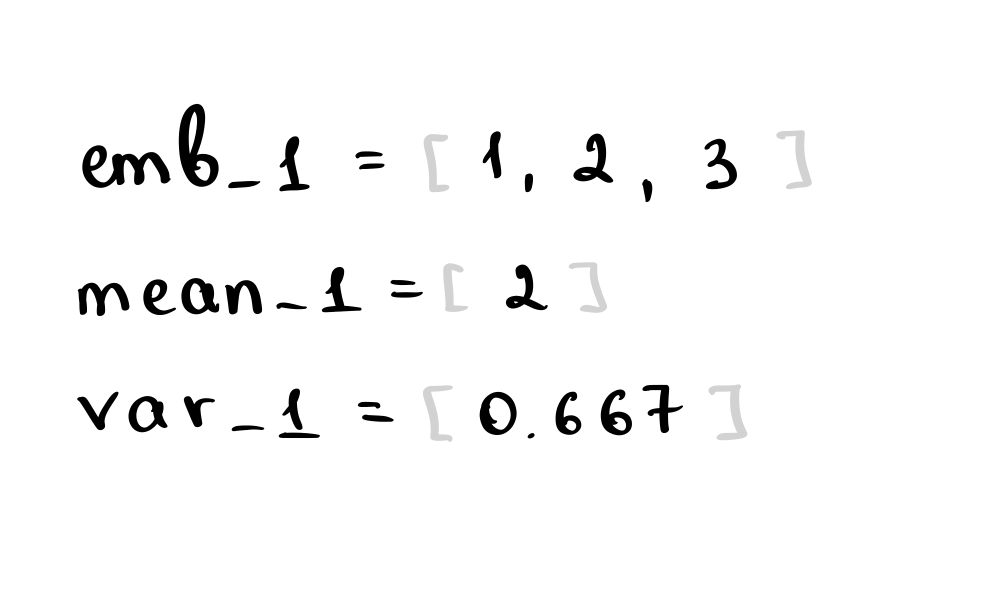 emb_1 = [ 1, 2, 3 ]
mean_1 = [ 2 ]
var_1 = [ 0.667 ]